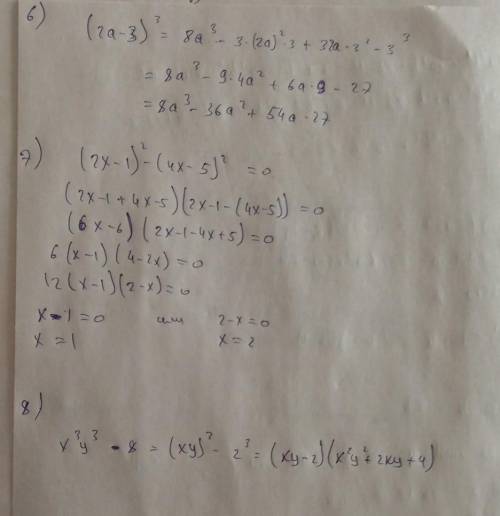 6)
(2a-3)³ = 8a³ - 3·(2a)²·3 + 3·2a·3² - 3³
= 8a³ - 9·4a² + 6a·9 - 27
= 8a³ - 36a² + 54a · 27
7)
(2x-1)² - (4x-5)² = 0
(2x-1+4x-5)(2x-1-(4x-5)) = 0
(6x-6)(2x-1-4x+5) = 0
6(x-1)(4-2x) = 0
12(x-1)(2-x) = 0
x-1=0 или 2-x=0
x=1 x=2
8)
x³y³ - 8 = (xy)³ - 2³ = (xy-2)(x²y²+2xy+4)